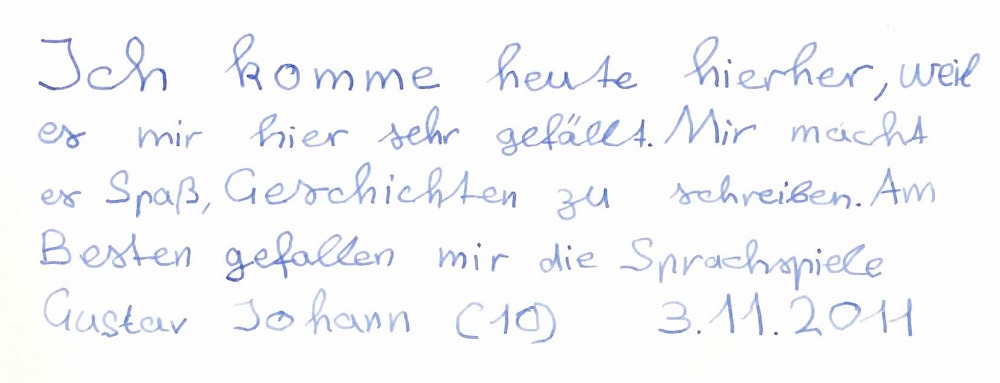 Ich komme heute hierher, weil
es mir hier sehr gefällt. Mir macht
es Spaß, Geschichten zu schreiben. Am
Besten gefallen mir die Sprachspiele
Gustav Johann (10) 3.11.2011